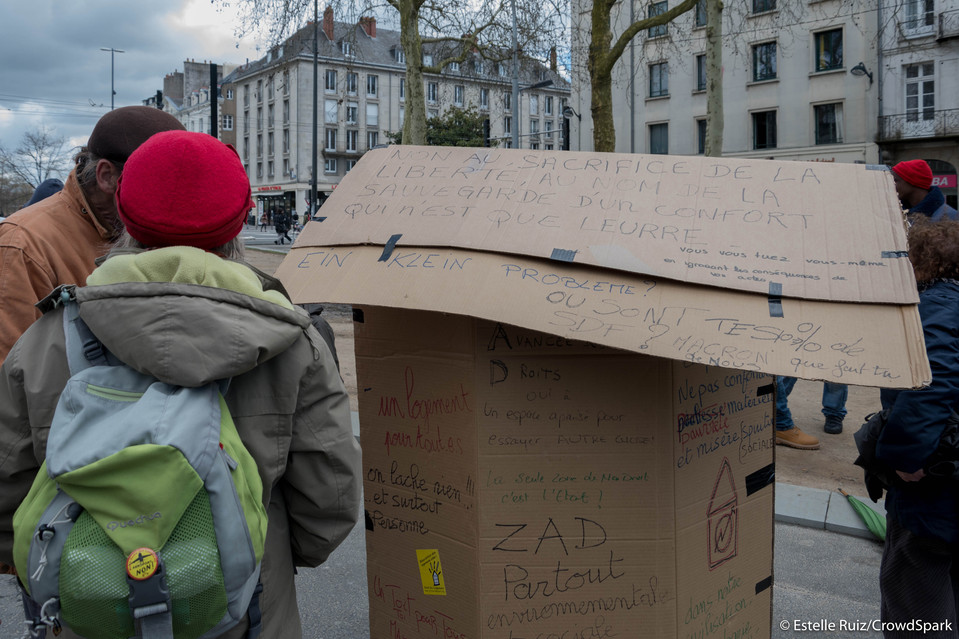 NON AU SACRIFICE DE LA
LIBERTÉ, AU NOM DE LA
SAUVEGARDE D'UN CONFORT
QUI N'EST QUE LEURRE
vous vous tuez vous-même
en ignorant les conséquences de
vos actes
EIN KLEIN PROBLEME?
OU SONT TES 0% de
SDF? MACRON que fait tu
AVANCÉE
DROITS
OUI
Un espace apaisé pour
essayer
La seule zone de Non Droit
c'est l'État!
ZAD
Partout
environnementale
sociale
un logement
pour toutes
on lache rien!!!
et surtout
Personne
Un Toit Pour
Ne pas confondre
matérielle
pauvreté
et misère
spirituelle
sociale
dans notre
quechua
NON
BA
© Estelle Ruiz/CrowdSpark